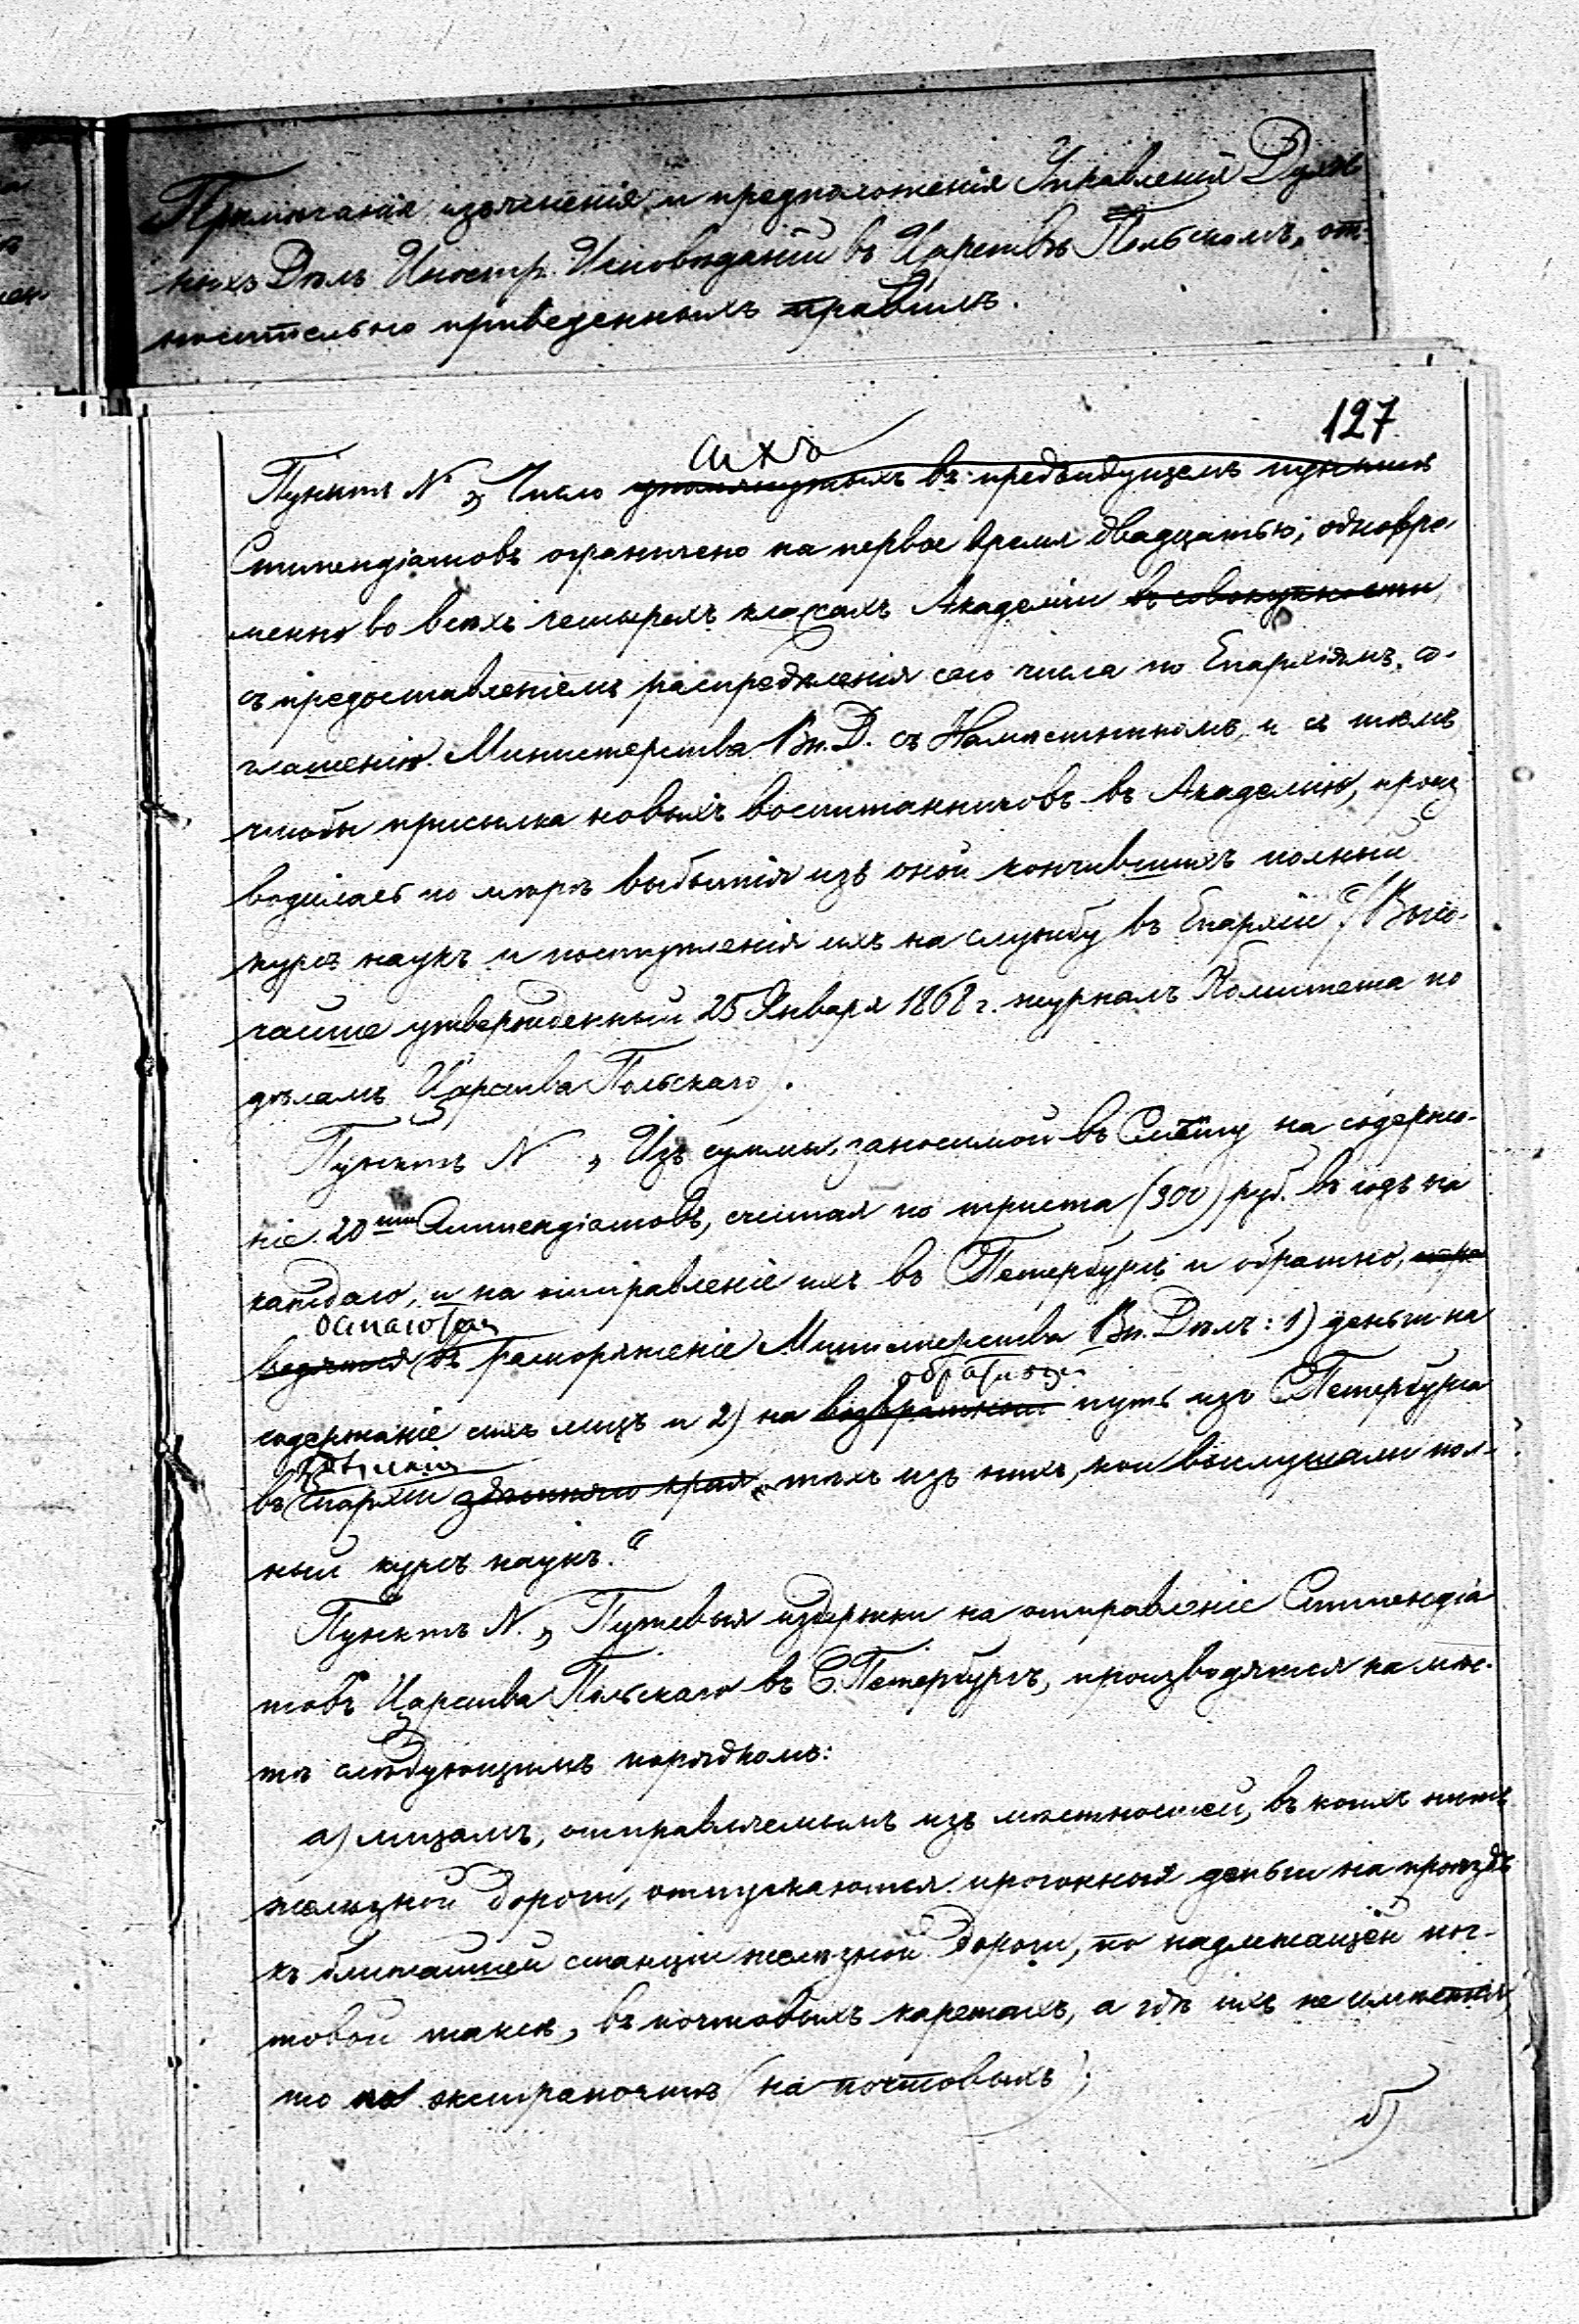 Примѣчанія, изъясненія и предположенія Управленія Духов
ныхъ Дѣлъ Иностр. Исповѣданій въ Царствѣ Польскомъ, от-
носительно приведенныхъ правилъ.
127
сихъ
Пунктъ N „Число упомянутыхъ въ предъидущемъ пунктѣ
Стипендіатовъ ограничено на первое время двадцатью, одновре
менно во всѣхъ четырехъ классахъ Академіи въ совокупности
съ предоставленіемъ распредѣленія сего числа по Епархіямъ, со-
глашенію Министерства Вн. Д. съ Намѣстникомъ, и съ тѣмъ
чтобы присылка новыхъ воспитанниковъ въ Академію, произ
водилась по мѣрѣ выбытія изъ оной кончившихъ полный
курсъ наукъ и поступленія ихъ на службу въ Епархіи (Высо-
чайше утвержденный 25 Января 1868 г. журналъ Комитета по
дѣламъ Царства Польскаго).
Пунктъ N „Изъ суммы, заносимой въ Смѣту на содержа-
ніе 20ти Стипендіатовъ, считая по триста (300) руб. въ годъ на
каждаго, и на отправленіе ихъ въ С.Петербургъ и обратно, пере
осыпаются
водятся въ распоряженіе Министерства Вн. Дѣлъ: 1) деньги на
содержаніе сихъ лицъ и 2) на возвратный путь изъ С.Петербурга
обратный
въ Епархіи здѣшняго края тѣхъ изъ нихъ, кои выслушали пол-
ный курсъ наукъ.“
Пунктъ N. „Путевыя издержки на отправленіе Стипендіа
товъ Царства Польскаго въ С.Петербургъ, производятся на мѣс-
тѣ слѣдующимъ порядкомъ:
а) лицамъ, отправляемымъ изъ мѣстностей, въ коихъ нѣтъ
желѣзной дороги, отпускаются прогонныя деньги на проѣздъ
къ ближайшей станціи желѣзной дороги, по надлежащей поч-
товой таксѣ, въ почтовыхъ каретахъ, а гдѣ ихъ не имѣется
то по экстрапочтѣ (на почтовыхъ);
б)